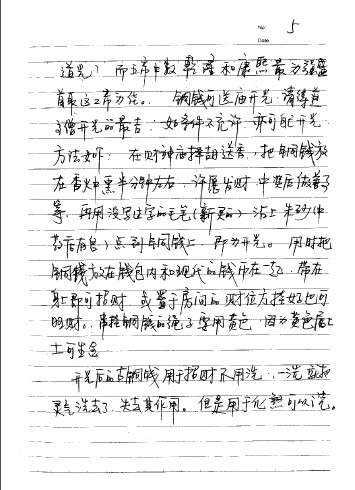 No. 5
Date
道光）而五帝中数乾隆和康熙最为强盛
首取这二帝为佳。铜钱可送庙开光，请得道
高僧开光的最吉，如条件不允许，亦可自己开光
方法如下：在财神庙择吉送香，把铜钱放
在香炉熏半分钟左右，许愿发财，中奖后做善事
等，再用没写过字的毛笔（新买的）沾上朱砂（中
药店有售）点到铜钱上，即为开光。用时把
铜钱放在钱包内和现代的钱币在一起，带在
身上即可招财，或置于房间的财位方挂好也可
旺财。串挂铜钱的绳子要用黄色，因为黄色属土
土可生金
开光后的古铜钱用于招财不用洗，一洗就把
灵气洗去了，失去其作用。但是用于化煞可以洗。